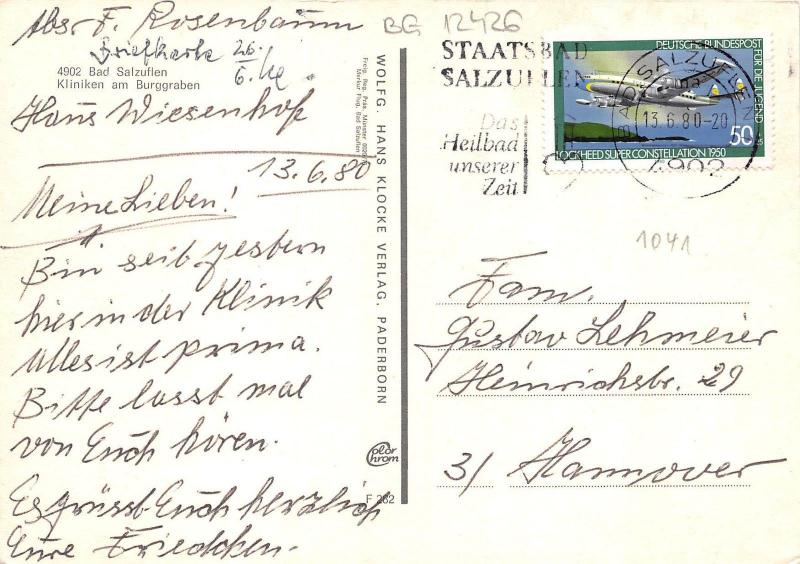 Abs. F. Rosenbaum
Briefkarte 26.
6.
4902 Bad Salzuflen
Kliniken am Burggraben
Haus Wiesenhof
13.6.80
Meine Lieben!
Bin seit gestern
hier in der Klinik
Alles ist prima.
Bitte lasst mal
von Euch hören.
Es grüsst Euch herzlich
Eure Friedchen.
WOLFG. HANS KLOCKE VERLAG, PADERBORN
Color
chrom
F 262
BG 12426
STAATSBAD
SALZUFLEN
Das
Heilbad
unserer
Zeit
DEUTSCHE BUNDESPOST
FÜR DIE JUGEND
50
LOCKHEED SUPER CONSTELLATION 1950
BAD SALZUFLEN
13.6.80-20
4902
1041
Fam.
Gustav Lehmeier
Heinrichstr. 29
3/ Hannover